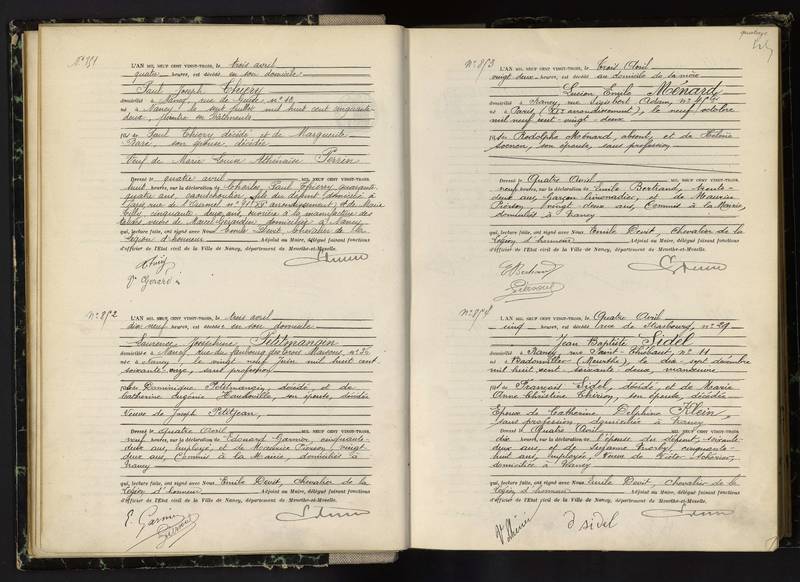 N° 851
L'AN MIL NEUF CENT VINGT-TROIS, le trois avril
quatre heures, est décédé en son domicile
Paul Joseph Thiery
domicilié à Nancy, rue de Guise n° 10,
né à Nancy, le sept juillet mil huit cent cinquante
deux, peintre en bâtiments
fils de Paul Thiery décédé et de Marguerite
son épouse, décédée
Veuf de Marie Louise Athénaïse Perrin
Devant le quatre avril MIL NEUF CENT VINGT-TROIS,
huit heures, sur la déclaration de Charles Paul Thiery, quarante
quatre ans, caoutchoutier, fils du défunt, domicilié à
Paris, rue de l'Ourcq n° (XX arrondissement) & de Marie
cinquante deux ans, ouvrière à la manufacture des
tabacs, veuve de Marcel Girardin, domiciliée à Nancy
qui, lecture faite, ont signé avec Nous Emile Devit, Chevalier de la
Légion d'honneur Adjoint au Maire, délégué faisant fonctions
d'officier de l'Etat civil de la Ville de Nancy, département de Meurthe-et-Moselle.
N° 852
L'AN MIL NEUF CENT VINGT-TROIS, le trois avril
dix neuf heures, est décédée en son domicile
Laurence Joséphine Petitmangin
domiciliée à Nancy, rue du faubourg des trois Maisons, n° 30
née à Nancy, le vingt neuf juin mil huit cent
soixante onze, sans profession
fille de Dominique Petitmangin, décédé et de
Catherine Eugénie son épouse, décédée
Veuve de Joseph Petitjean,
Devant le quatre Avril MIL NEUF CENT VINGT-TROIS,
neuf heures, sur la déclaration de Edouard Garnier, cinquante-
deux ans, employé, et de Maurice Pierson, vingt-
deux ans, Commis à la Mairie, domiciliés à
Nancy
qui, lecture faite, ont signé avec Nous Emile Devit, chevalier de la
Légion d'honneur Adjoint au Maire, délégué faisant fonctions
d'officier de l'Etat civil de la Ville de Nancy, département de Meurthe-et-Moselle.
E. Garnier
N° 853
L'AN MIL NEUF CENT VINGT-TROIS, le Trois Avril
vingt deux heures, est décédé au domicile de la mère
Lucien Emile Ménard
domicilié à Nancy, rue Sigisbert Adam, n° 41
né à Paris (arrondissement), le neuf octobre
mil neuf cent vingt-deux
fils de Rodolphe Ménard, absent, et de Hélène
son épouse, sans profession
Devant le Quatre Avril MIL NEUF CENT VINGT-TROIS,
neuf heures, sur la déclaration de Emile Bertrand, trente-
deux ans, garçon livreur, et de Maurice
Pierson, vingt deux ans, Commis à la Mairie,
domiciliés à Nancy
qui, lecture faite, ont signé avec Nous Emile Devit, Chevalier de la
Légion d'honneur Adjoint au Maire, délégué faisant fonctions
d'officier de l'Etat civil de la Ville de Nancy, département de Meurthe-et-Moselle.
E Bertrand
N° 854
L'AN MIL NEUF CENT VINGT-TROIS, le Quatre Avril
cinq heures, est décédé rue de Strasbourg, n° 29
Jean Baptiste Sidel
domicilié à Nancy, rue Saint-Thiébaut, n° 11
né à Badonviller (Meurthe), le dix-sept décembre
mil huit cent soixante deux, manœuvre
fils de François Sidel, décédé, et de Marie
Anne Christine Thirion, son épouse, décédée
Epoux de Catherine Delphine Klein,
sans profession, domiciliée à Nancy
Devant le Quatre Avril MIL NEUF CENT VINGT-TROIS,
dix heures, sur la déclaration de l'épouse du défunt, soixante-
deux ans, et de Suzanne cinquante-
huit ans, employée, veuve de Victor
domiciliée à Nancy
qui, lecture faite, ont signé avec Nous Emile Devit, chevalier de la
Légion d'honneur Adjoint au Maire, délégué faisant fonctions
d'officier de l'Etat civil de la Ville de Nancy, département de Meurthe-et-Moselle.
d sidel